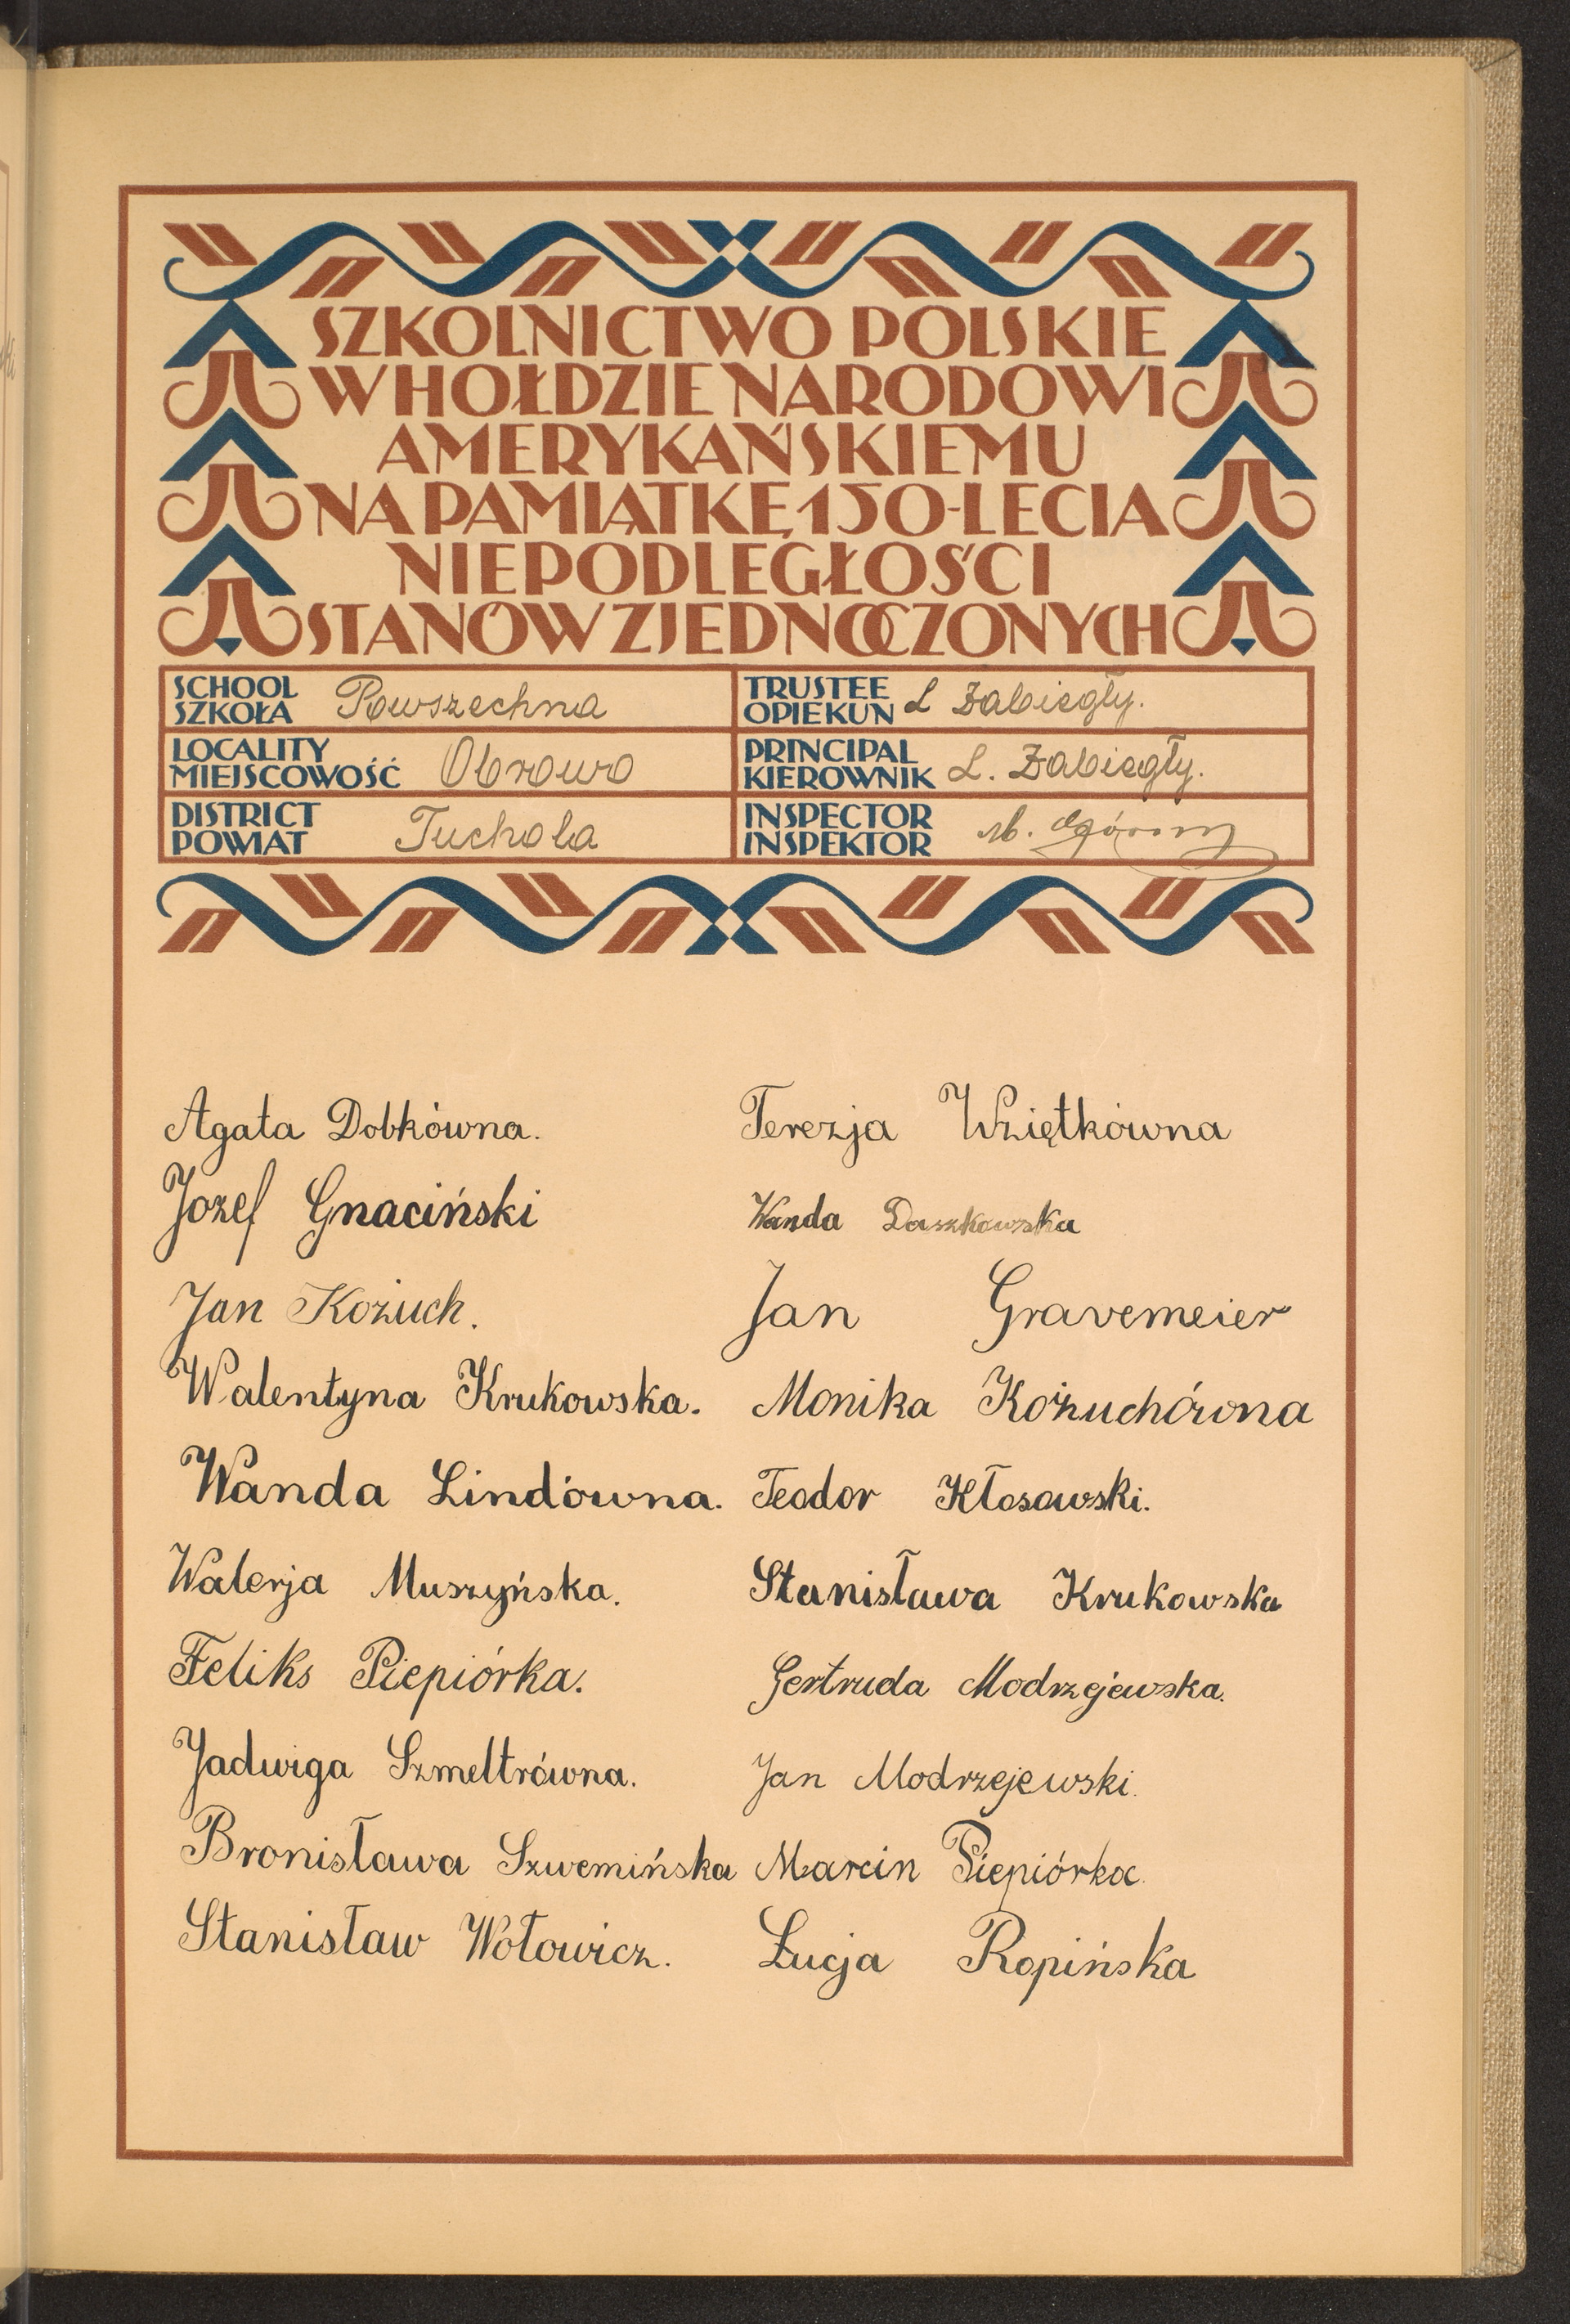 SZKOLNICTWO POLSKIE
W HOŁDZIE NARODOWI
AMERYKAŃSKIEMU
NA PAMIĄTKĘ 150-LECIA
NIEPODLEGŁOŚCI
STANÓW ZJEDNOCZONYCH
SCHOOL
SZKOŁA Powszechna
TRUSTEE
OPIEKUN L Zabiegły.
LOCALITY
MIEJSCOWOŚĆ Obrowo
PRINCIPAL
KIEROWNIK L. Zabiegły.
DISTRICT
POWIAT Tuchola
INSPECTOR
INSPEKTOR
Agata Dobkówna.
Jozef Gnaciński
Jan Kożuch.
Walentyna Krukowska.
Wanda Lindówna.
Walerja Muszyńska.
Feliks Piepiórka.
Jadwiga Szmeltrówna.
Bronisława Szwemińska
Stanisław Wołowicz.
Terezja Wziętkówna
Wanda Daszkowska
Jan Gravemeier
Monika Kożuchówna
Teodor Kłosowski.
Stanisława Krukowska
Gertruda Modrzejewska.
Jan Modrzejewski.
Marcin Piepiórka.
Łucja Ropińska